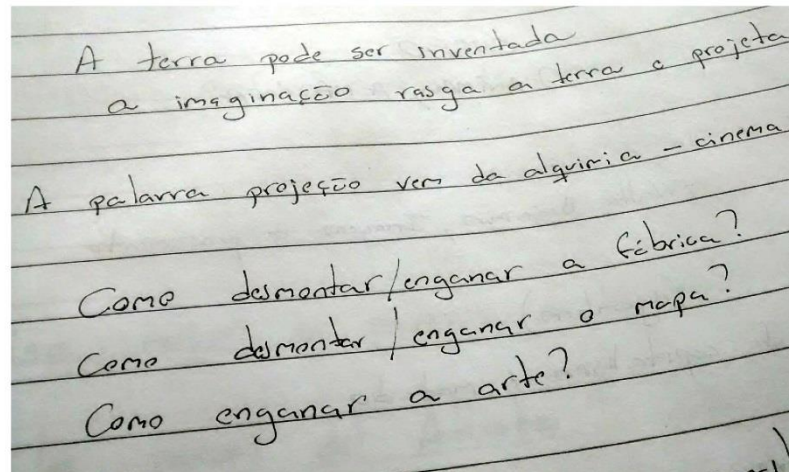 A terra pode ser inventada
a imaginação rasga a terra e projeta
A palavra projeção vem da alquimia - cinema
Como desmontar/enganar a fábrica?
Como desmontar/enganar o mapa?
Como enganar a arte?